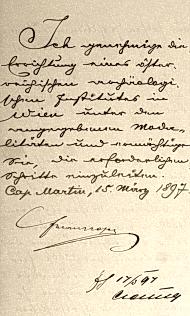 Ich genehmige die
Errichtung eines öster-
reichischen archäologi-
schen Institutes in
Wien unter den
angegebenen Moda-
litäten und ermächtige
Sie, die erforderlichen
Schritte einzuleiten.
Cap Martin, 15. März 1897